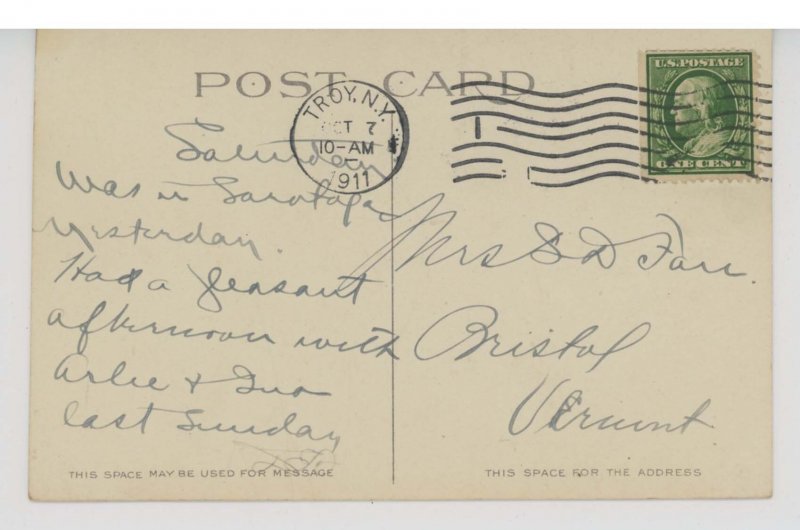 POST CARD
TROY, N.Y.
OCT 7
10-AM
1911
U.S. POSTAGE
ONE CENT
Saturday
Was in Saratoga
yesterday.
Had a pleasant
afternoon with
Arlie &
last Sunday
Mrs S D Farr.
Bristol
Vermont
THIS SPACE MAY BE USED FOR MESSAGE
THIS SPACE FOR THE ADDRESS